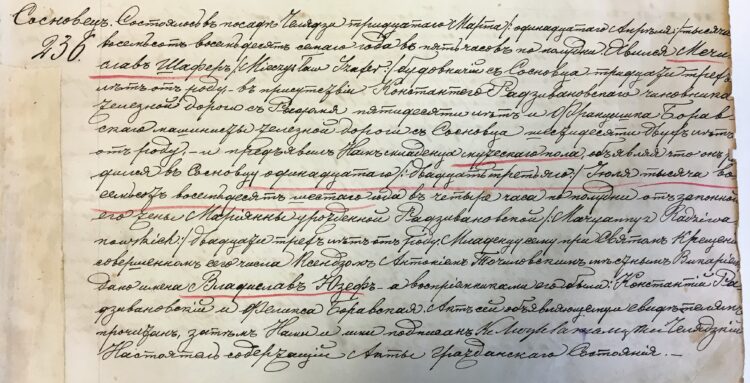 Сосновец. Состоялось въ посадѣ Челядзи тридцатаго Марта /: одинадцатаго Апрѣля :/ тысяча
236. восемьсотъ восемьдесятъ седьмаго года въ пять часовъ по полудни. Явился Мечи-
славъ Шаферъ /: Mieczysław Szafer :/ будовничій съ Сосновца тридцати трехъ
лѣтъ отъ роду, въ присутствіи Константаго Радзивановскаго чиновника
желѣзной дороги съ Радомя пятидесяти лѣтъ и Францишка Борав-
скаго машинисты желѣзной дороги съ Сосновца шестидесяти двухъ лѣтъ
отъ роду, и предъявилъ Намъ младенца мужескаго пола, объявляя что онъ
дился въ Сосновцу одинадцатаго /: двадцать третьяго :/ Іюля тысяча во-
семьсотъ восемьдесятъ шестаго года въ четыре часа по полудни отъ законной
его жены Маріянны урожденной Радзивановской /: Maryanny z Radziwa-
nowskich :/ двадцати трехъ лѣтъ отъ роду. Младенцу сему при Святомъ Крещеніи
совершенномъ сего числа Ксендзомъ Антоніемъ Точиловскимъ мѣстнымъ Викаріемъ
дано имена Владиславъ Юзефъ, а воспріемниками его были: Константій Ра-
дзивановскій и Фелиса Боравская. Актъ сей объявляющему и свидѣтелямъ
прочитанъ, затѣмъ Нами и ими подписанъ.
Настоятель содержащій Акты гражданскаго Состоянія.